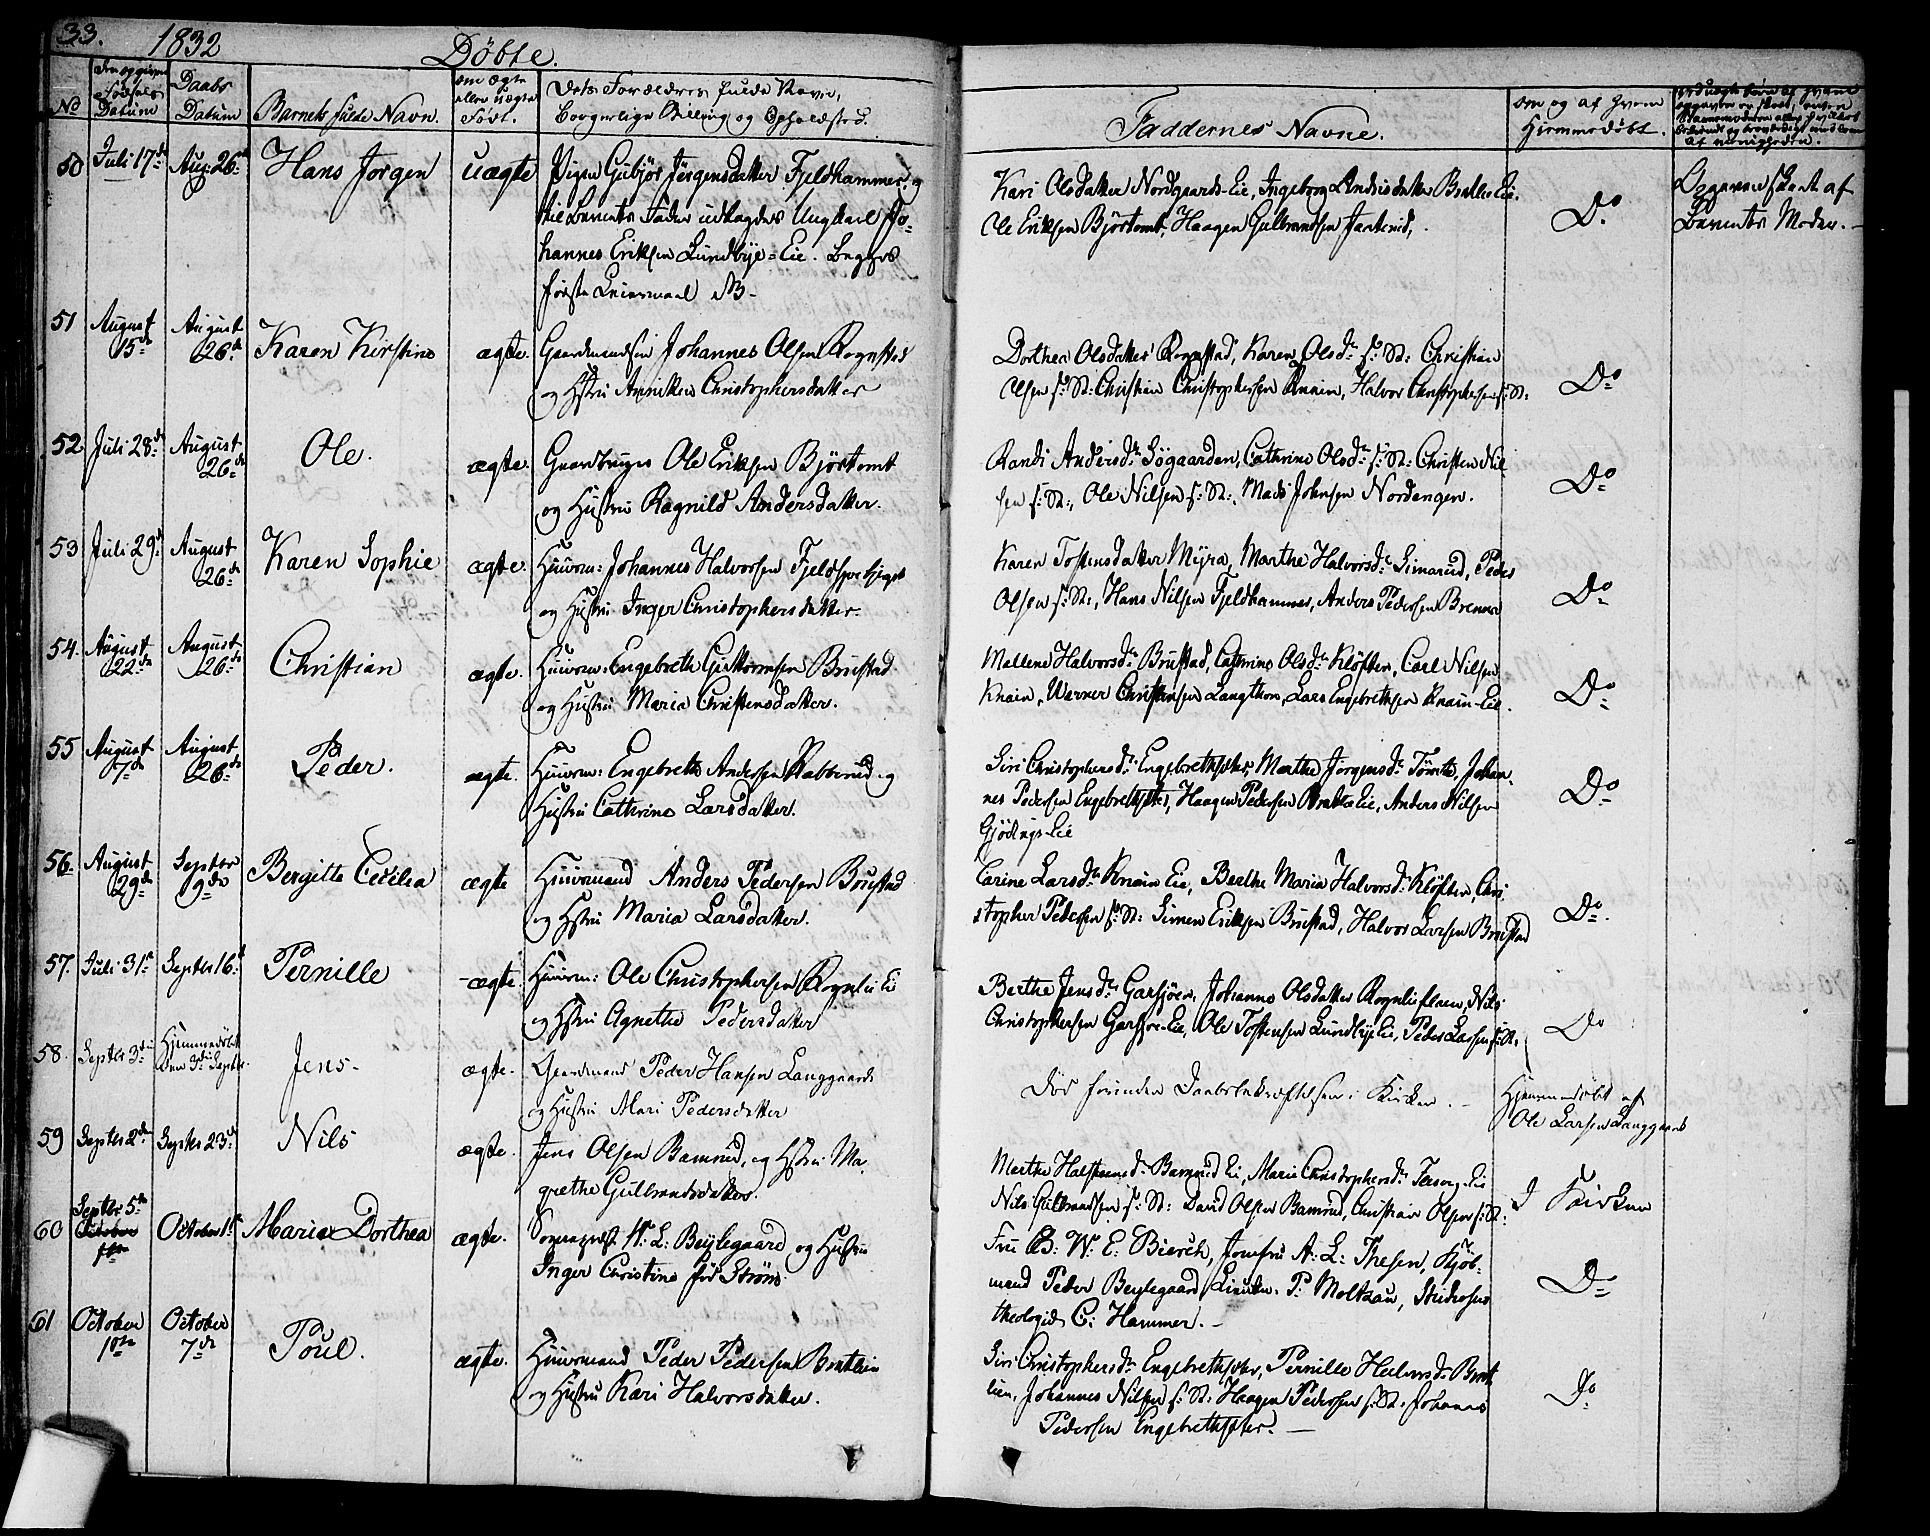 33. 1832 Døbte.
No
den opgivne Fødsels Datum
Daabs Datum
Barnets fulde Navn.
om ægte eller uægte Født.
Dets Forældres fulde Navne,
borgerlige Stilling og Opholdssted.
Faddernes Navne.
om og af hvem Hiemmedøbt.
50 Juli 17de Aug: 26de Hans Jørgen uægte Pigen Gubjør Jørgensdatter Fjeldhammer, og
til Barnets Fader udlagdes Ungkarl Jo-
hannes Eriksen Lundbye-Eie. Begges
første Leiermaal
Kari Olsdatter Nordgaards-Eie, Ingeborg Andersdatter Bratlie Eie.
Ole Eriksen Bjørtomt, Haagen Gulbrandsen
Do.
Opgaven skeet af
Barnets Moder.
51 August 15de August 26de Karen Kirstine ægte. Gaardmand Johannes Olsen Rognstad
og Hstru Anniken Christophersdatter
Dorthea Olsdatter Rognstad, Karen Olsdr s: St: Christian
Olsen s: St: Christian Christophersen Knain, Halvor Christophersen s: St:
Do
52. Juli 28de August 26de Ole. ægte. Gaardbruger Ole Eriksen Bjørtomt
og Hustru Ragnild Andersdatter.
Randi Andersdr Søgaarden, Cathrine Olsdr s: St: Christen Nil-
sen s: St:, Ole Nilsen s: St:, Mads Johnsen Nordengen.
Do
53 Juli 29de August 26de Karen Sophie ægte. Huusm: Johannes Halvorsen
og Hustru Inger Christophersdatter.
Karen Tostensdatter Myra, Marthe Halvorsdr Simarud, Peder
Olsen s: St:, Hans Nilsen Fjeldhammer, Anders Pedersen Brenna
Do
54. August 22de August 26de Christian ægte. Huusm: Engebreth Guttormsen Brustad
og Hustru Maria Christensdatter.
Mallene Halvorsdr Brustad, Cathrine Olsdr Kløften, Carl Nilsen
Knain, Warner Christensen Langthon, Lars Engebrethsen Knain-Eie.
Do
55 August 7de August 26de Peder. ægte. Huusm: Engebreth Andersen Rabberud og
Hustru Cathrine Larsdatter.
Siri Christophersdr Engebrethsæter, Marthe Jørgensdr Tømte, Johan-
nes Pedersen Engebrethsæter, Haagen Pedersen Bratlie Eie, Anders Nilsen
Gjødings-Eie
Do
56. August 29de Septbr 9de Bergitte Cecilia ægte Huusmand Anders Pedersen Brustad
og Hstru Maria Larsdatter.
Carine Larsdr Knain Eie, Berthe Maria Halvorsdr Kløften, Chri-
stopher Pedersen s: St: Simen Eriksen Brustad, Halvor Larsen Brustad
Do.
57. Juli 31te Septbr 16de Pernille ægte. Huusm: Ole Christophersen Rognli Ei
og Hstru Agnethe Pedersdatter
Berthe Jensdr Garsjøen, Johanne Olsdatter Nils
Christophersen Garsjøe-Eie, Ole Tostensen Lundbye Eie, Peder Larsen s: St.
Do
58. Septbr 3die Hjemmedøbt den 3die Septbr. Jens. ægte. Gaardmand Peder Hansen Langgaard
og Hustru Mari Pedersdatter
Død forinden Daabsbekræftelsen i Kirken.
Hjemmedøbt af
Ole Larsen Langgaard
59 Septbr 2den Septbr 23de Nils ægte. Jens Olsen Bamrud, og Hstru Ma-
grethe Gulbrandsdatter.
Marthe Halstensdr Bamrud Eie, Maria Christophersdr
Nils Gulbrandsen s: St: David Olsen Bamrud, Christian Olsen s: St:
I Kirken
60 Septbr 5te October 1ste Maria Dorthea ægte. Sogneprest H: L: Beylegaard og Hustru
Inger Christine fød Strøm
Fru B: W: E: Biersch, Jomfru A: L: Thesen, Kjøb-
mand Peder Beylegaard, Lieutn. P: Moltzau, Studiosus
theologiæ C: Hammer.
Do
61 October 1ste October 7de Poul. ægte. Huusmand Peder Pedersen Bratlien
og Hustru Kari Halvorsdatter.
Siri Christophersdr Engebrethsæter, Pernille Halvorsdr Brat-
lien, Johannes Nilsen s: St: Haagen Pedersen s: St. Johannes
Pedersen Engebrethsæter.
Do